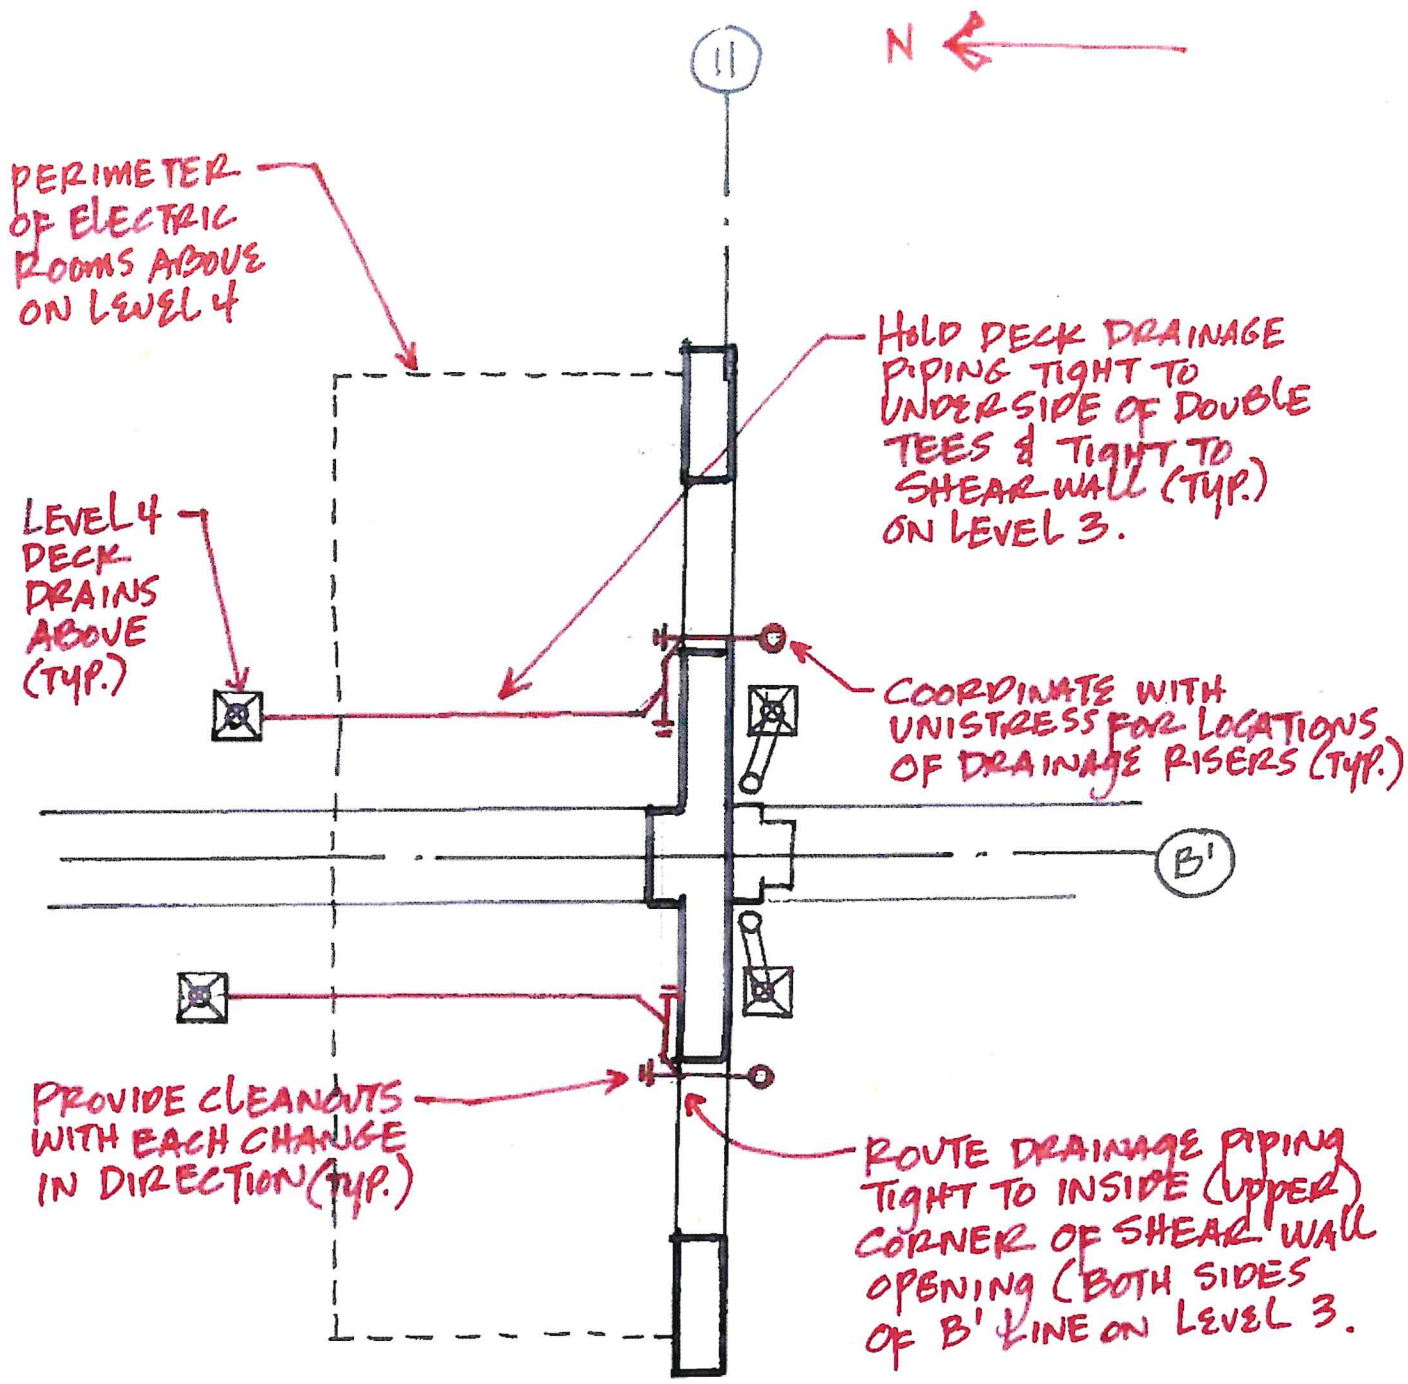 11
N
PERIMETER
OF ELECTRIC
ROOMS ABOVE
ON LEVEL 4
HOLD DECK DRAINAGE
PIPING TIGHT TO
UNDERSIDE OF DOUBLE
TEES & TIGHT TO
SHEAR WALL (TYP.)
ON LEVEL 3.
LEVEL 4
DECK
DRAINS
ABOVE
(TYP.)
COORDINATE WITH
UNISTRESS FOR LOCATIONS
OF DRAINAGE RISERS (TYP.)
B'
PROVIDE CLEANOUTS
WITH EACH CHANGE
IN DIRECTION (TYP.)
ROUTE DRAINAGE PIPING
TIGHT TO INSIDE (UPPER)
CORNER OF SHEAR WALL
OPENING (BOTH SIDES
OF B' LINE ON LEVEL 3.